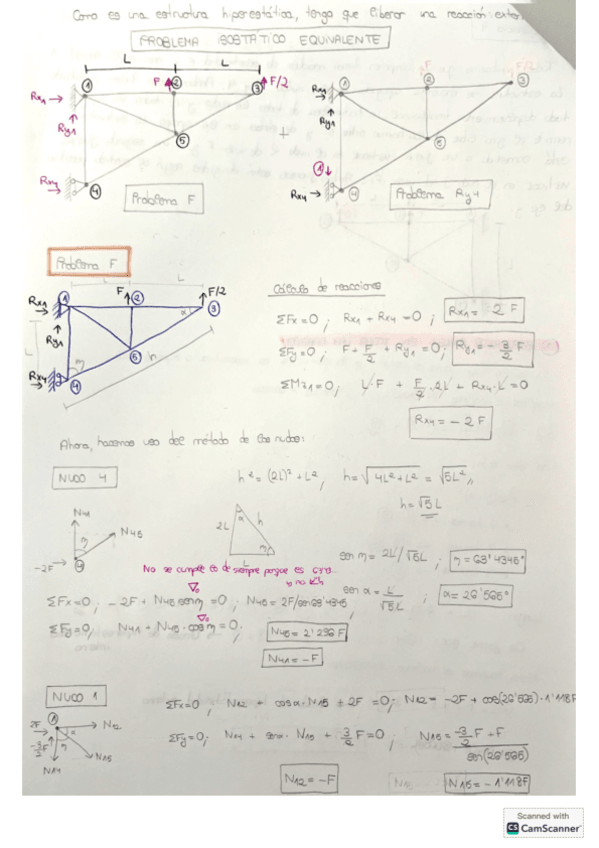 Como es una estructura hiperestática, tengo que liberar una reacción: exter
PROBLEMA ISOSTÁTICO EQUIVALENTE
L L
1 F 2 F/2 3
Rx1
Ry1
5
Rx4
4
Problema F
+
1 F 2 F/2 3
Rx1
Ry1
5
1
Rx4
4
Problema Ry4
Problema F
L L
Rx1 1 F 2 F/2 3
α
Ry1
L
5 h
η
Rx4 4
Cálculo de reacciones
ΣFx=0 ; Rx1 + Rx4 = 0 ; Rx1 = 2F
ΣFy=0 ; F + F/2 + Ry1 = 0 ; Ry1 = - 3/2 F
ΣMz1=0 ; L·F + F/2 · 2L + Rx4·L = 0
Rx4 = - 2F
Ahora, hacemos uso del método de los nudos:
NUDO 4
h² = (2L)² + L² , h = √4L²+L² = √5L² ,,
h = √5L
N41
N45
η
-2F
4
2L α h
η
L
sen η = 2L/√5L ; η = 63'4345°
No se cumple lo de siempre porque es 63'0..
y no 45
sen α = L/√5L ; α = 26'565°
ΣFx=0 ; -2F + N45 sen η = 0 ; N45 = 2F/sen 63'4345
ΣFy=0 ; N41 + N45 · cos η = 0 ; N45 = 2'236F
N41 = -F
NUDO 1
2F 1 N12
-3/2F α
η N15
N14
ΣFx=0 , N12 + cosα · N15 + 2F = 0 ; N12 = -2F + cos(26'565)·1'118F
ΣFy=0 ; N14 + senα · N15 + 3/2 F = 0 ; N15 = -3/2 F + F / sen(26'565)
N12 = -F
N15 = -1'118F
Scanned with
CS CamScanner